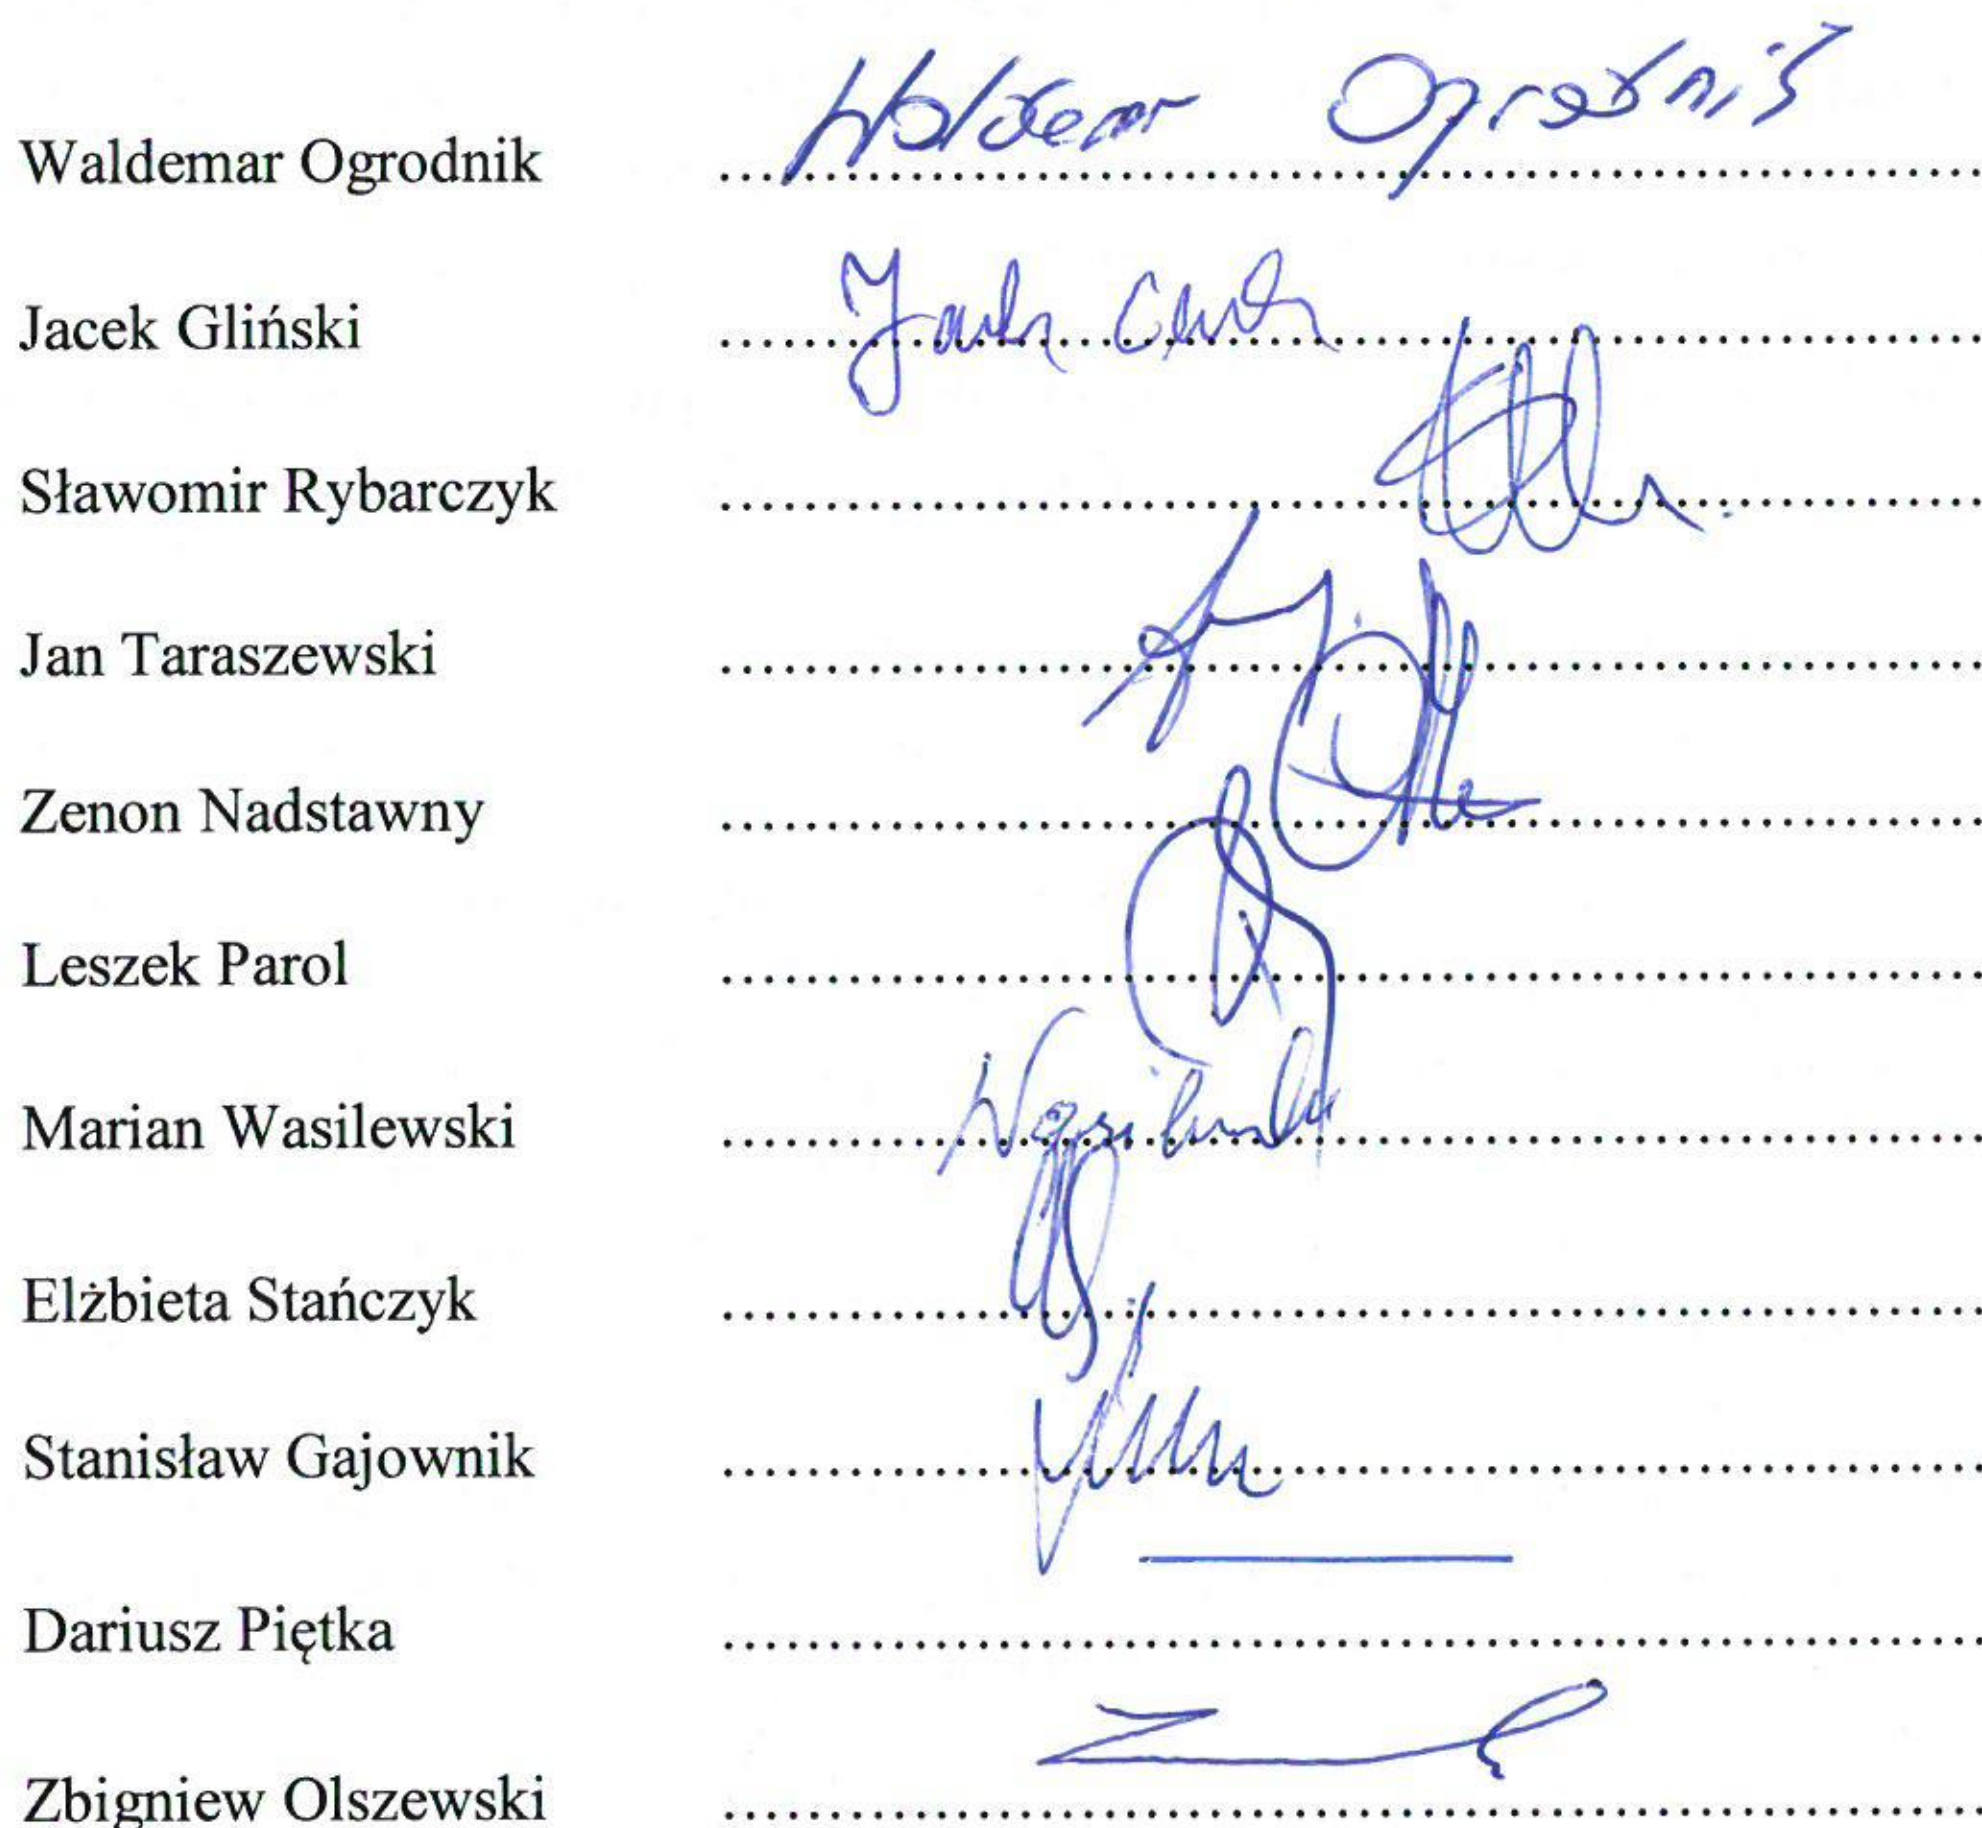 Waldemar Ogrodnik .......... Waldemar Ogrodnik
Jacek Gliński ..........
Sławomir Rybarczyk ..........
Jan Taraszewski ..........
Zenon Nadstawny ..........
Leszek Parol ..........
Marian Wasilewski .......... Wasilewski
Elżbieta Stańczyk ..........
Stanisław Gajownik ..........
Dariusz Piętka ..........
Zbigniew Olszewski ..........